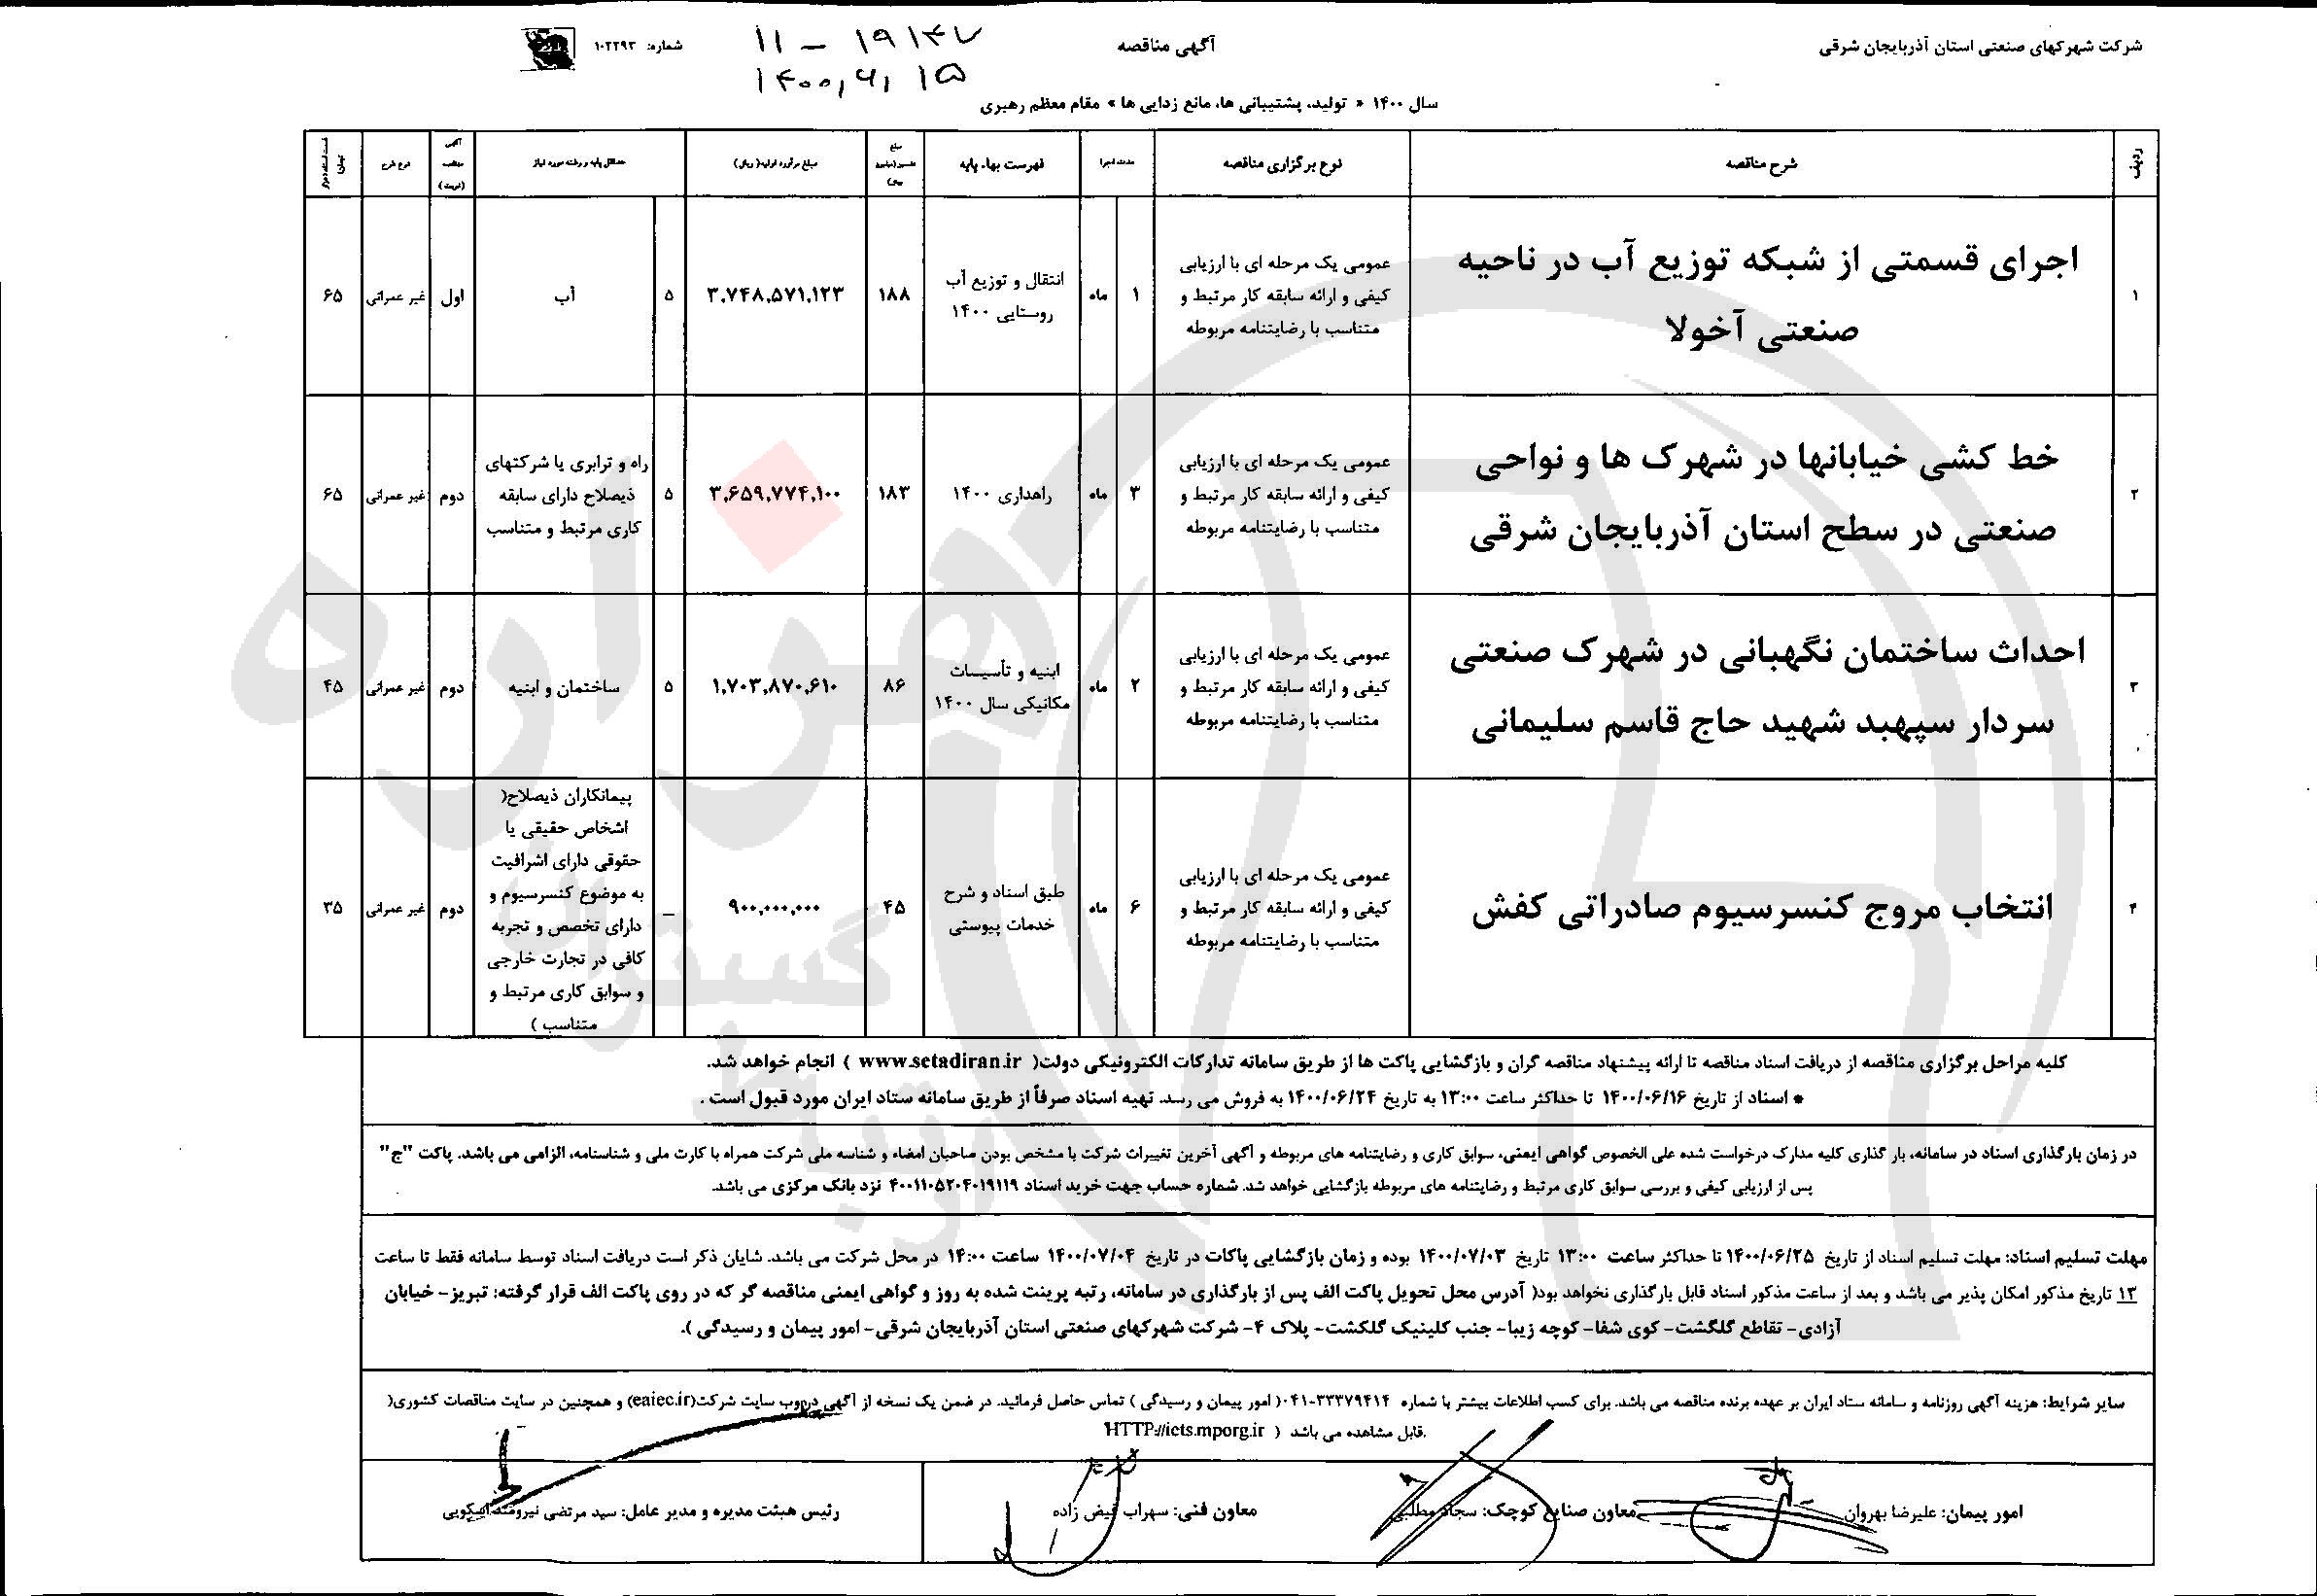 شرکت شهرکهای صنعتی استان آذربایجان شرقی
آگهی مناقصه
۱۱ - ۱۹۱۴۷
۱۴۰۰,۶,۱۵
شماره: ۱۰۲۲۹۳
سال ۱۴۰۰ « تولید، پشتیبانی ها، مانع زدایی ها » مقام معظم رهبری
ردیف
شرح مناقصه
نوع برگزاری مناقصه
مدت اجرا
فهرست بهاء پایه
مبلغ
مبلغ برآورد اولیه( ریال)
حداقل پایه و رشته مورد نیاز
آگهی مناقصه (نوبت)
نوع طرح
۱
اجرای قسمتی از شبکه توزیع آب در ناحیه
صنعتی آخولا
عمومی یک مرحله ای با ارزیابی
کیفی و ارائه سابقه کار مرتبط و
متناسب با رضایتنامه مربوطه
۱
ماه
انتقال و توزیع آب
روستایی ۱۴۰۰
۱۸۸
۳,۷۴۸,۵۷۱,۱۲۳
۵
آب
اول
غیر عمرانی
۶۵
۲
خط کشی خیابانها در شهرک ها و نواحی
صنعتی در سطح استان آذربایجان شرقی
عمومی یک مرحله ای با ارزیابی
کیفی و ارائه سابقه کار مرتبط و
متناسب با رضایتنامه مربوطه
۳
ماه
راهداری ۱۴۰۰
۱۸۳
۳,۶۵۹,۷۷۴,۱۰۰
۵
راه و ترابری یا شرکتهای
ذیصلاح دارای سابقه
کاری مرتبط و متناسب
دوم
غیر عمرانی
۶۵
۳
احداث ساختمان نگهبانی در شهرک صنعتی
سردار سپهبد شهید حاج قاسم سلیمانی
عمومی یک مرحله ای با ارزیابی
کیفی و ارائه سابقه کار مرتبط و
متناسب با رضایتنامه مربوطه
۲
ماه
ابنیه و تأسیسات
مکانیکی سال ۱۴۰۰
۸۶
۱,۷۰۳,۸۷۰,۶۱۰
۵
ساختمان و ابنیه
دوم
غیر عمرانی
۴۵
۴
انتخاب مروج کنسرسیوم صادراتی کفش
عمومی یک مرحله ای با ارزیابی
کیفی و ارائه سابقه کار مرتبط و
متناسب با رضایتنامه مربوطه
۶
ماه
طبق اسناد و شرح
خدمات پیوستی
۴۵
۹۰۰,۰۰۰,۰۰۰
_
پیمانکاران ذیصلاح(
اشخاص حقیقی یا
حقوقی دارای اشرافیت
به موضوع کنسرسیوم و
دارای تخصص و تجربه
کافی در تجارت خارجی
و سوابق کاری مرتبط و
متناسب )
دوم
غیر عمرانی
۳۵
کلیه مراحل برگزاری مناقصه از دریافت اسناد مناقصه تا ارائه پیشنهاد مناقصه گران و بازگشایی پاکت ها از طریق سامانه تدارکات الکترونیکی دولت( www.setadiran.ir ) انجام خواهد شد.
* اسناد از تاریخ ۱۴۰۰/۰۶/۱۶ تا حداکثر ساعت ۱۳:۰۰ به تاریخ ۱۴۰۰/۰۶/۲۴ به فروش می رسد. تهیه اسناد صرفاً از طریق سامانه ستاد ایران مورد قبول است .
در زمان بارگذاری اسناد در سامانه، بار گذاری کلیه مدارک درخواست شده علی الخصوص گواهی ایمنی، سوابق کاری و رضایتنامه های مربوطه و آگهی آخرین تغییرات شرکت با مشخص بودن صاحبان امضاء و شناسه ملی شرکت همراه با کارت ملی و شناسنامه، الزامی می باشد. پاکت "ج"
پس از ارزیابی کیفی و بررسی سوابق کاری مرتبط و رضایتنامه های مربوطه بازگشایی خواهد شد. شماره حساب جهت خرید اسناد ۴۰۰۱۱۰۵۲۰۴۰۱۹۱۱۹ نزد بانک مرکزی می باشد.
مهلت تسلیم اسناد: مهلت تسلیم اسناد از تاریخ ۱۴۰۰/۰۶/۲۵ تا حداکثر ساعت ۱۳:۰۰ تاریخ ۱۴۰۰/۰۷/۰۳ بوده و زمان بازگشایی پاکات در تاریخ ۱۴۰۰/۰۷/۰۴ ساعت ۱۴:۰۰ در محل شرکت می باشد. شایان ذکر است دریافت اسناد توسط سامانه فقط تا ساعت
۱۳ تاریخ مذکور امکان پذیر می باشد و بعد از ساعت مذکور اسناد قابل بارگذاری نخواهد بود( آدرس محل تحویل پاکت الف پس از بارگذاری در سامانه، رتبه پرینت شده به روز و گواهی ایمنی مناقصه گر که در روی پاکت الف قرار گرفته: تبریز- خیابان
آزادی- تقاطع گلگشت- کوی شفا- کوچه زیبا- جنب کلینیک گلگشت- پلاک ۴- شرکت شهرکهای صنعتی استان آذربایجان شرقی- امور پیمان و رسیدگی ).
سایر شرایط: هزینه آگهی روزنامه و سامانه ستاد ایران بر عهده برنده مناقصه می باشد. برای کسب اطلاعات بیشتر با شماره ۳۳۳۷۹۴۱۴-۰۴۱( امور پیمان و رسیدگی ) تماس حاصل فرمائید. در ضمن یک نسخه از آگهی در وب سایت شرکت(eaiec.ir) و همچنین در سایت مناقصات کشوری(
HTTP://iets.mporg.ir ) قابل مشاهده می باشد.
امور پیمان: علیرضا بهروان
معاون صنایع کوچک: سجاد مطلبی
معاون فنی: سهراب فیض زاده
رئیس هیئت مدیره و مدیر عامل: سید مرتضی نیرومند اسکویی
هزاره